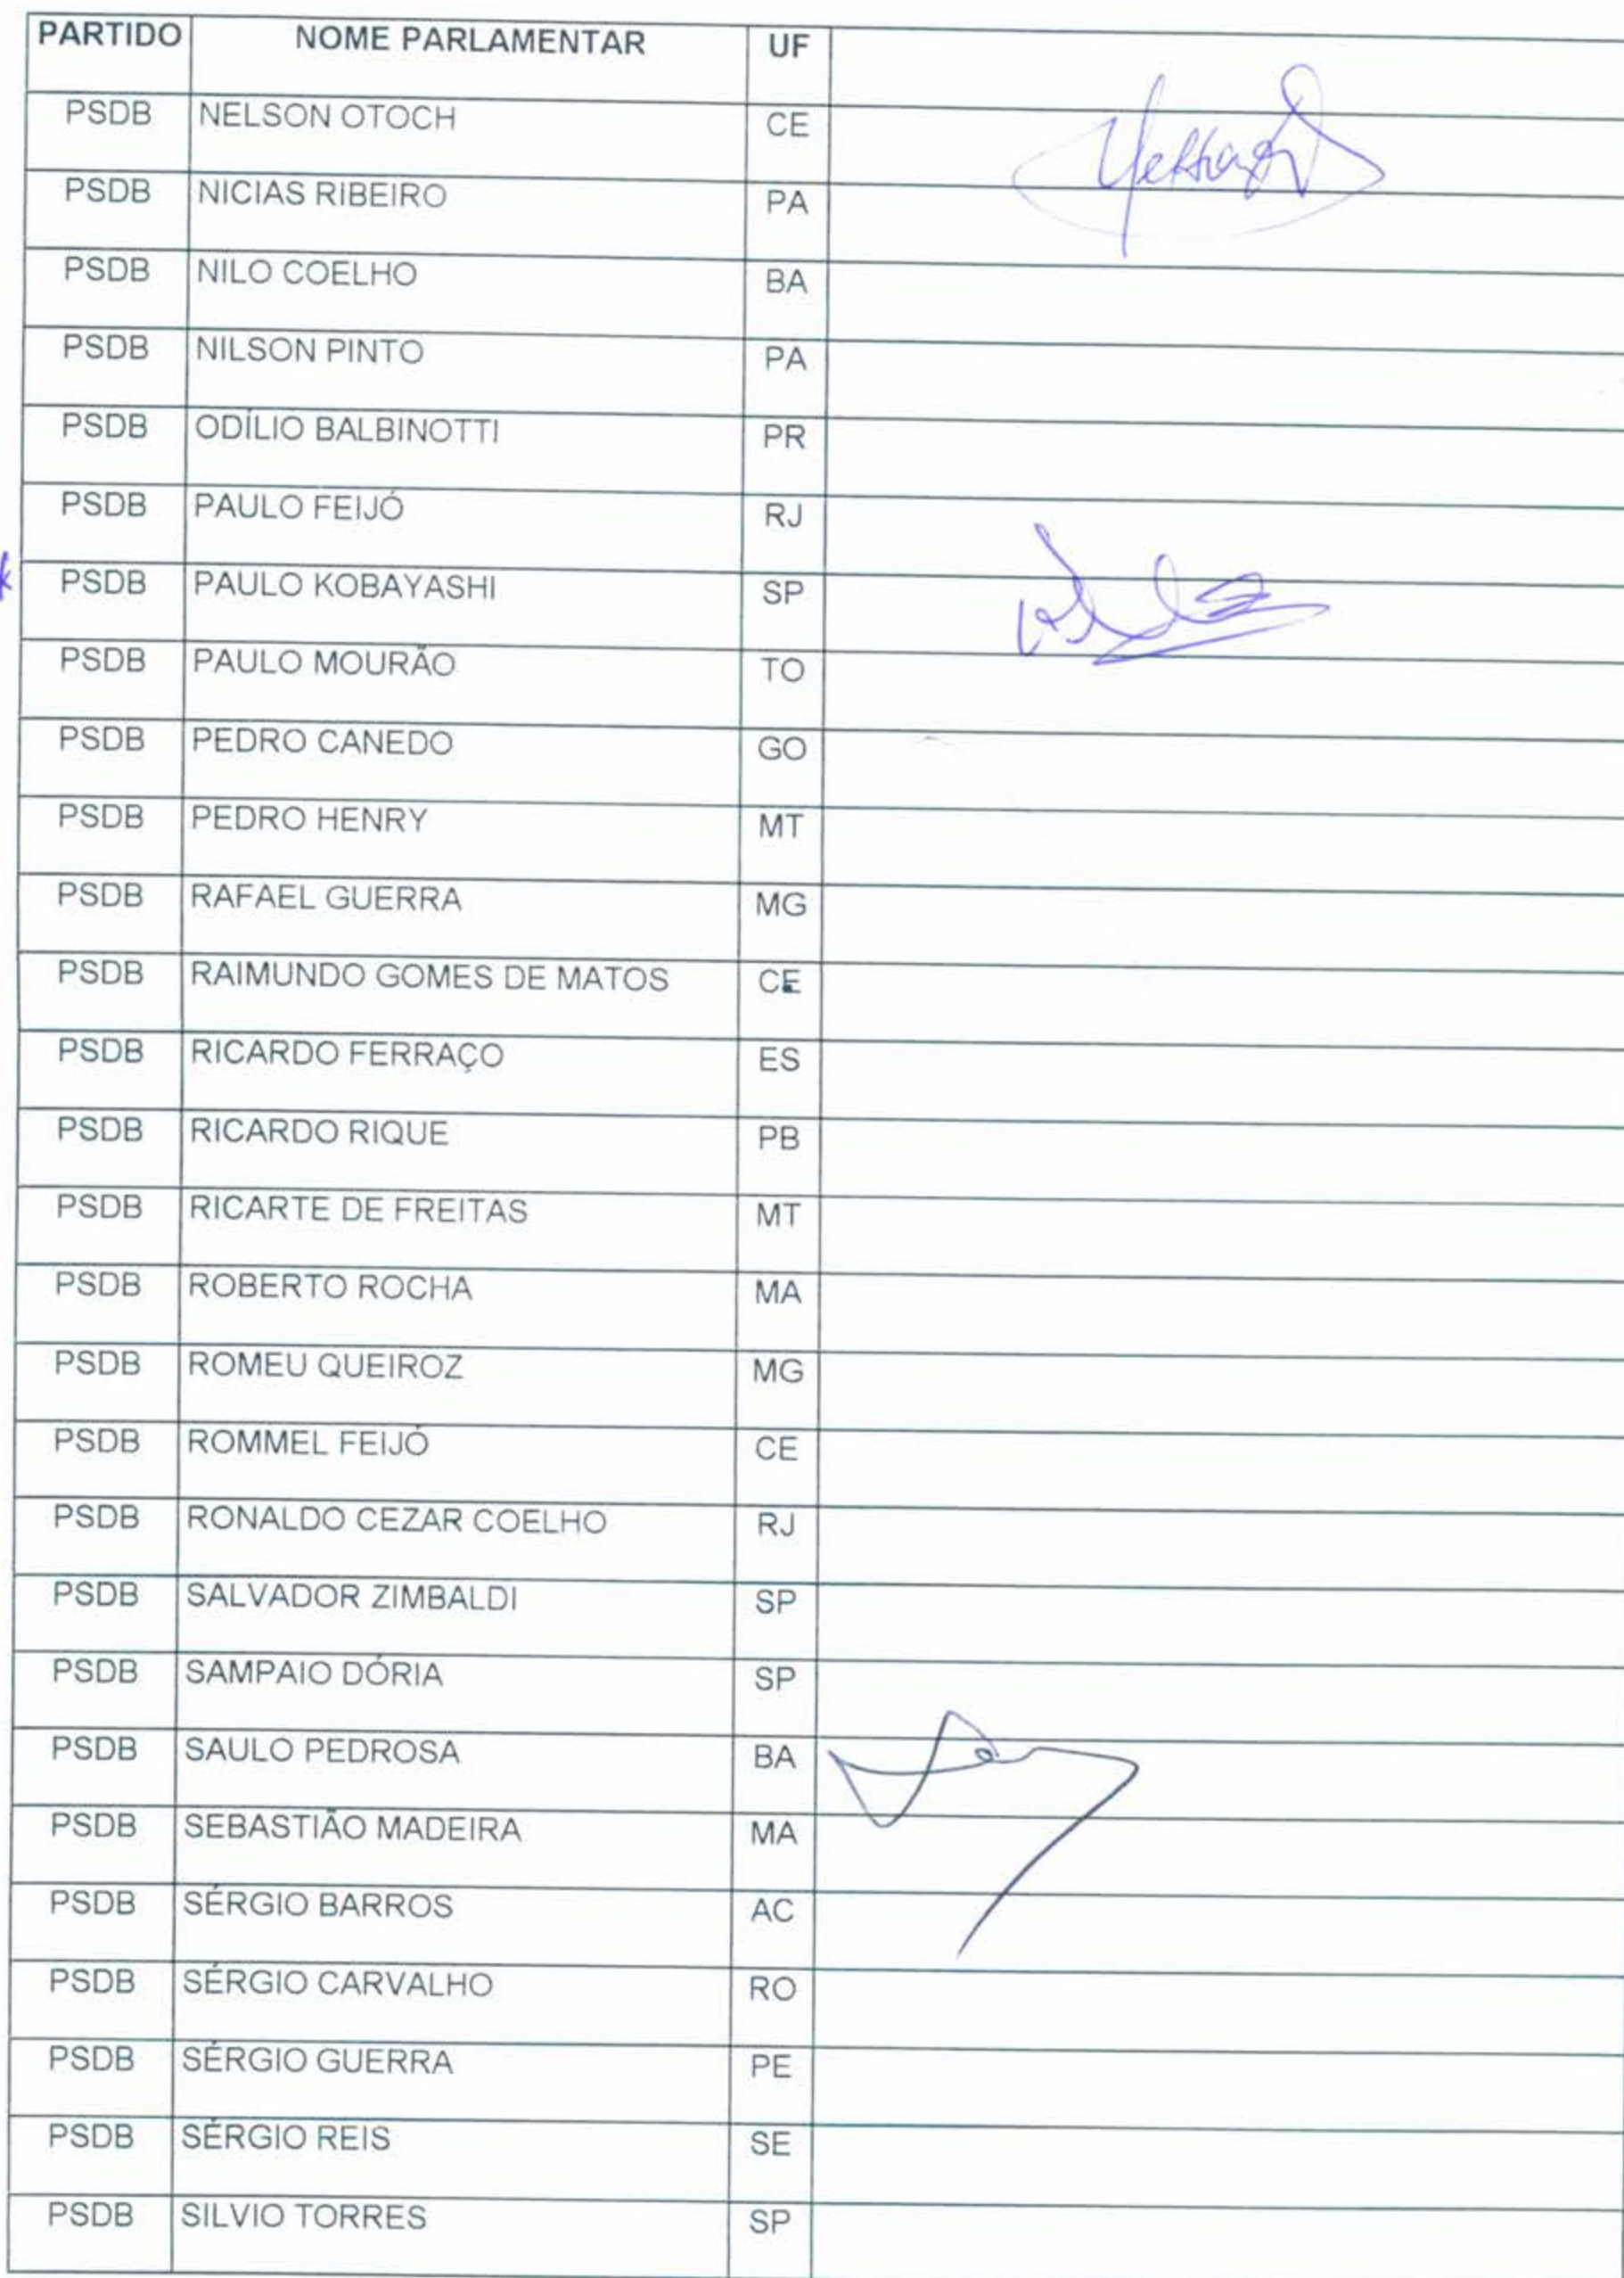 PARTIDO NOME PARLAMENTAR UF
PSDB NELSON OTOCH CE
PSDB NICIAS RIBEIRO PA
PSDB NILO COELHO BA
PSDB NILSON PINTO PA
PSDB ODÍLIO BALBINOTTI PR
PSDB PAULO FEIJÓ RJ
PSDB PAULO KOBAYASHI SP
PSDB PAULO MOURÃO TO
PSDB PEDRO CANEDO GO
PSDB PEDRO HENRY MT
PSDB RAFAEL GUERRA MG
PSDB RAIMUNDO GOMES DE MATOS CE
PSDB RICARDO FERRAÇO ES
PSDB RICARDO RIQUE PB
PSDB RICARTE DE FREITAS MT
PSDB ROBERTO ROCHA MA
PSDB ROMEU QUEIROZ MG
PSDB ROMMEL FEIJÓ CE
PSDB RONALDO CEZAR COELHO RJ
PSDB SALVADOR ZIMBALDI SP
PSDB SAMPAIO DÓRIA SP
PSDB SAULO PEDROSA BA
PSDB SEBASTIÃO MADEIRA MA
PSDB SÉRGIO BARROS AC
PSDB SÉRGIO CARVALHO RO
PSDB SÉRGIO GUERRA PE
PSDB SÉRGIO REIS SE
PSDB SILVIO TORRES SP